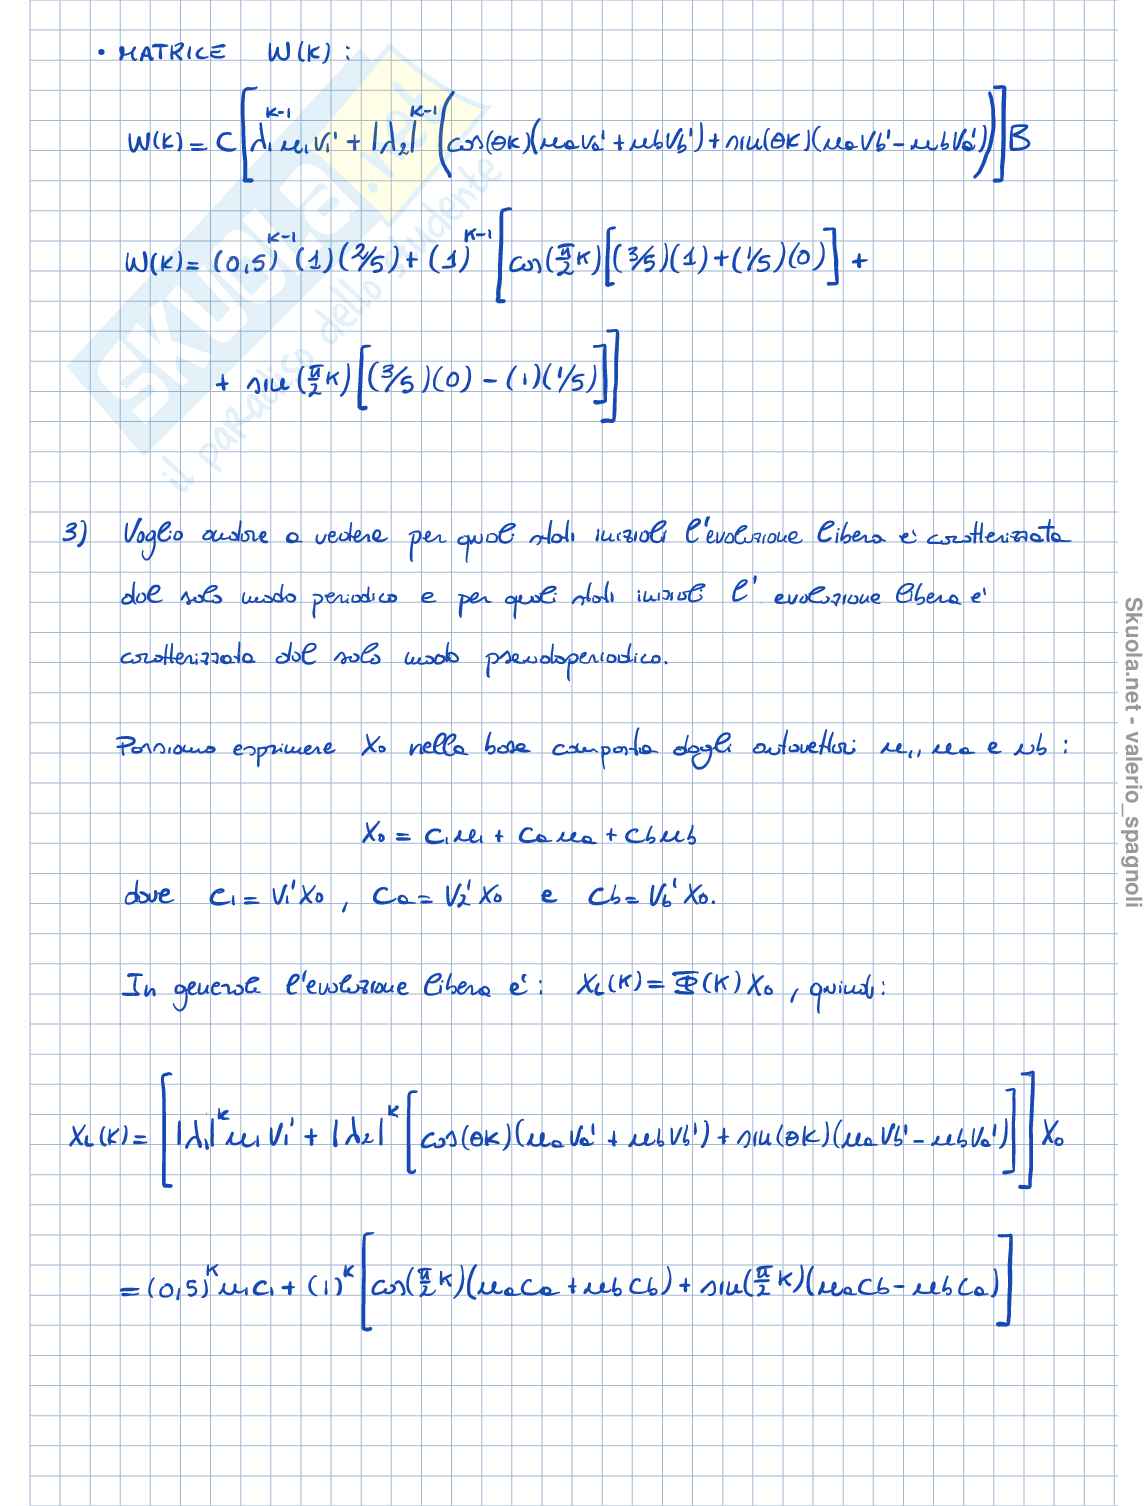 • MATRICE W(K) :
W(K) = C [ λ₁^(K-1) u₁ V₁' + |λ₂|^(K-1) ( cos(θK)(ua Va' + ub Vb') + sin(θK)(ua Vb' - ub Va') ) ] B
W(K) = (0,5)^(K-1) (1)(2/5) + (1)^(K-1) [ cos(π/2 K) [ (3/5)(1) + (1/5)(0) ] +
+ sin(π/2 K) [ (3/5)(0) - (1)(1/5) ] ]
3) Voglio andare a vedere per quali stati iniziali l'evoluzione libera è caratterizzata
dal solo modo periodico e per quali stati iniziali l'evoluzione libera è
caratterizzata dal solo modo pseudoperiodico.
Possiamo esprimere X₀ nella base composta dagli autovettori u₁, ua e ub :
X₀ = C₁u₁ + Caua + Cbub
dove C₁ = V₁'X₀ , Ca = V₂'X₀ e Cb = Vb'X₀.
In generale l'evoluzione libera è : XL(K) = Φ(K) X₀ , quindi :
XL(K) = [ |λ₁|^K u₁ V₁' + |λ₂|^K [ cos(θK)(ua Va' + ub Vb') + sin(θK)(ua Vb' - ub Va') ] ] X₀
= (0,5)^K u₁C₁ + (1)^K [ cos(π/2 K)(uaCa + ubCb) + sin(π/2 K)(uaCb - ubCa) ]
SKUOLA.net
il paradiso dello studente
Skuola.net - valerio_spagnoli